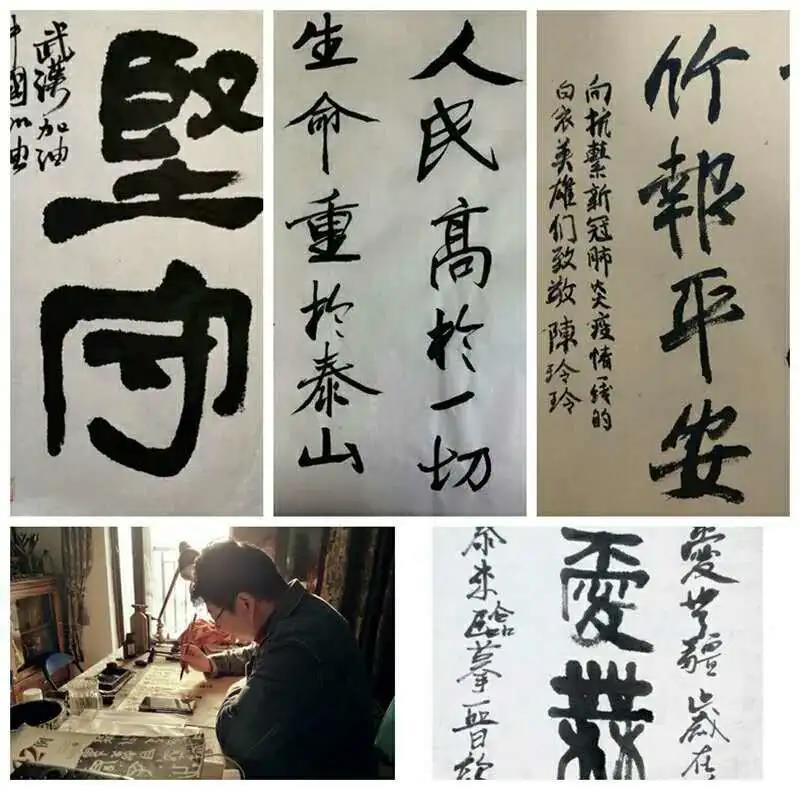 堅守
武漢加油
中國加油
人民高於一切
生命重於泰山
竹報平安
向抗擊新冠肺炎疫情一线的
白衣英雄们致敬 陳玲玲
愛無疆 歲在
愛無
臨摹